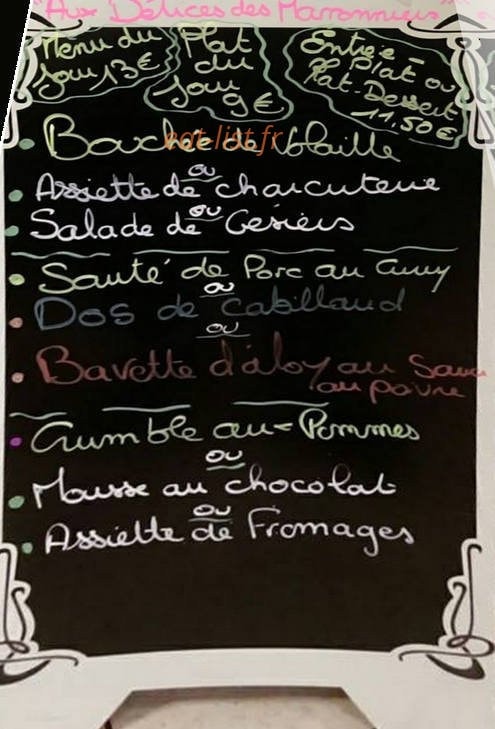 Aux Délices des Marronniers
Menu du
Jour 13€
Plat
du
Jour
9€
Entrée -
Plat ou
Plat-Dessert
11,50€
Bouchée de Volaille
eat-list.fr
ou
Assiette de charcuterie
ou
Salade de Gésiers
Sauté de Porc au Curry
ou
Dos de Cabillaud
ou
Bavette d'aloyau Sauce
au poivre
Crumble aux Pommes
ou
Mousse au chocolat
ou
Assiette de Fromages